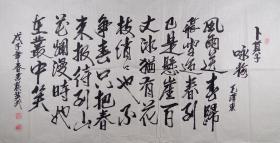 卜算子
咏梅
毛泽东
風雨送春歸
飛雪迎春到
已是懸崖百
丈冰猶有花
枝俏俏也不
争春只把春
来报待到山
花爛漫時她
在叢中笑
戊子年春